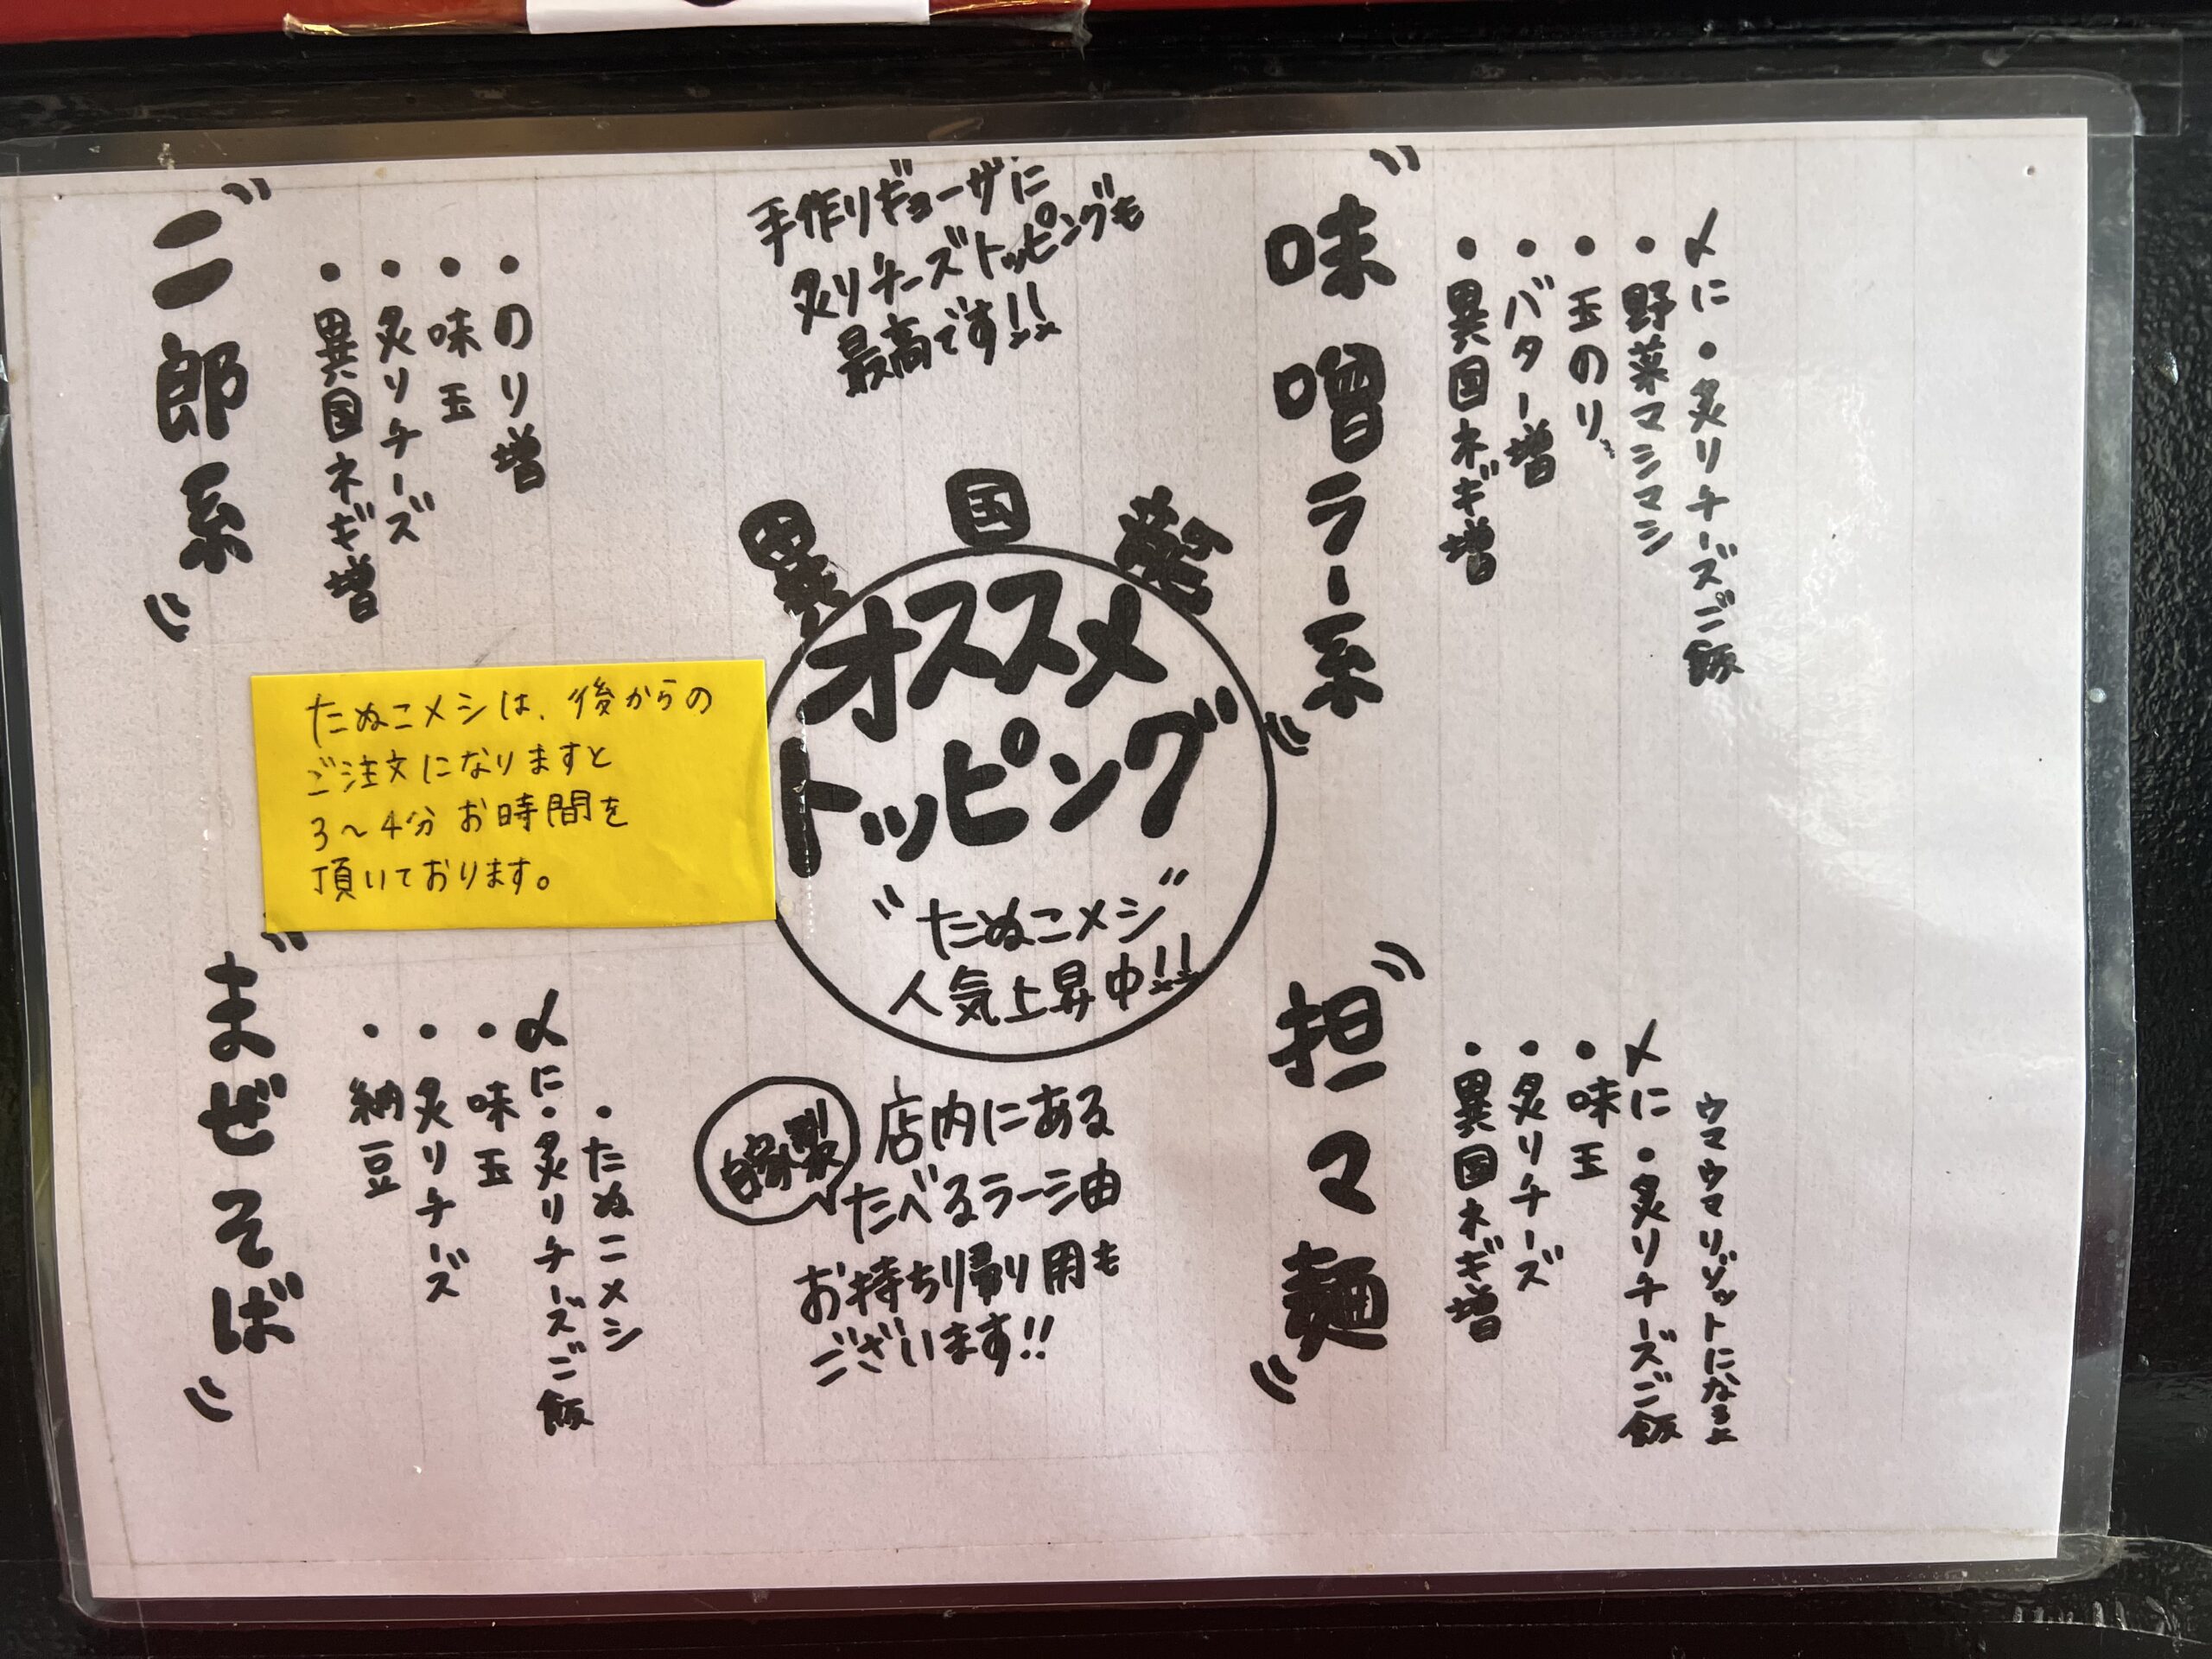 手作りギョーザに
炙リチーズトッピングも
最高です!!
異国
オススメ
トッピング
"たぬこメシ"
人気上昇中!!
自家製
店内にある
たべるラー油
お持ち帰り用も
ございます!!
"味噌ラー系"
・異国ネギ増
・バター増
・玉のり
・野菜マシマシ
〆に・炙リチーズご飯
"担マ麺"
・異国ネギ増
・炙リチーズ
・味玉
〆に・炙リチーズご飯
ウマウマリゾットになるよ
"二郎系"
・異国ネギ増
・炙リチーズ
・味玉
・のり増
たぬこメシは、後からの
ご注文になりますと
3〜4分お時間を
頂いております。
"まぜそば"
・納豆
・炙リチーズ
・味玉
〆に・炙リチーズご飯
・たぬこメシ